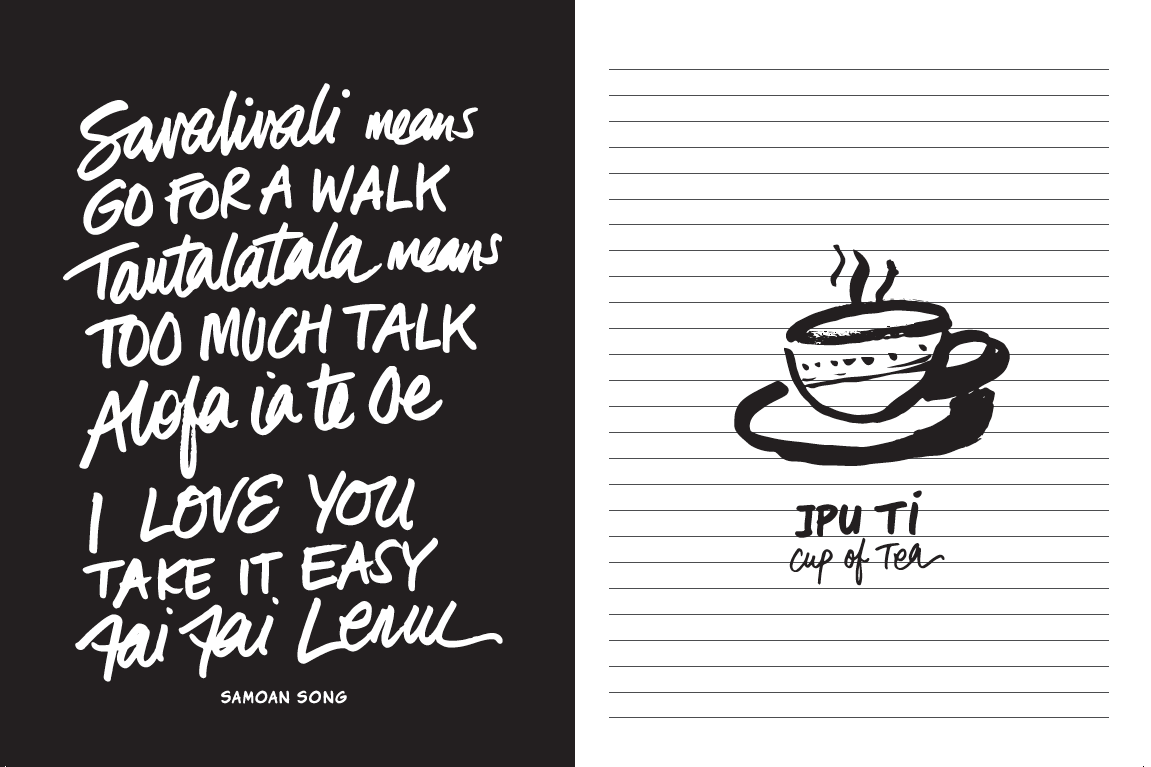 Savalivali means
GO FOR A WALK
Tautalatala means
TOO MUCH TALK
Alofa ia te Oe
I LOVE YOU
TAKE IT EASY
Fai Fai Lemu
SAMOAN SONG
IPU Ti
cup of Tea